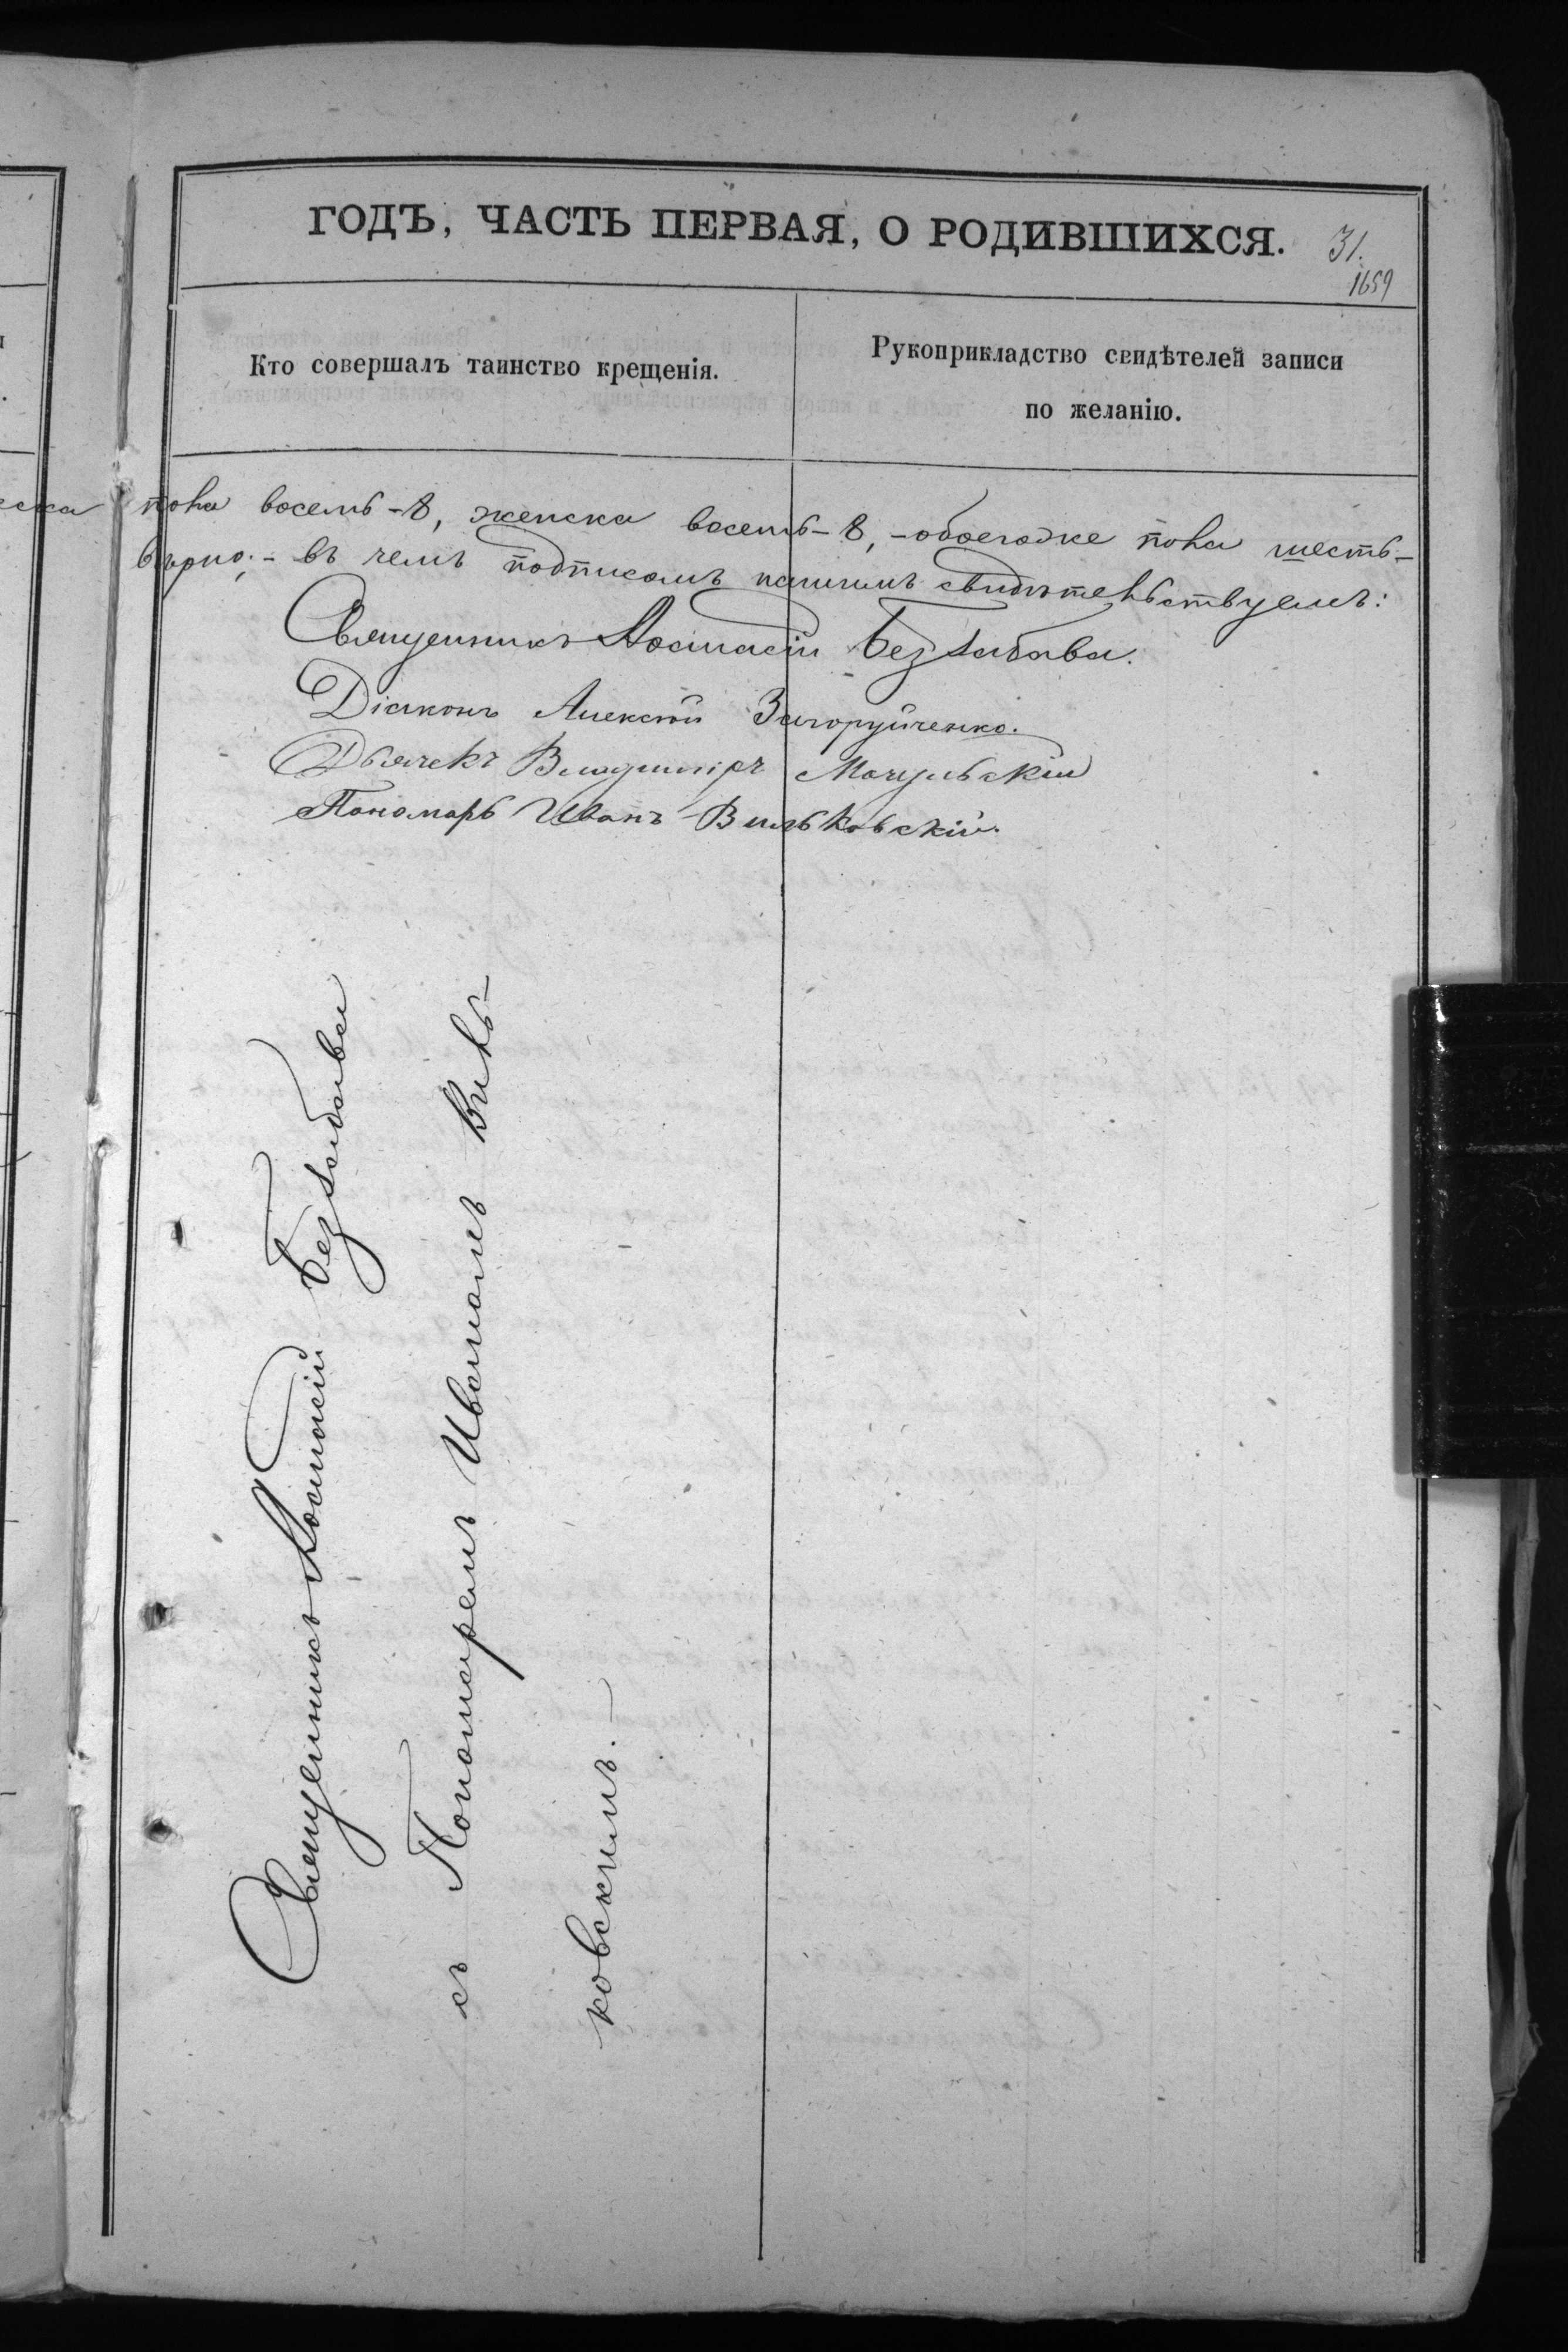 ГОДЪ, ЧАСТЬ ПЕРВАЯ, О РОДИВШИХСЯ.
31.
1659
Кто совершалъ таинство крещенія.
Рукоприкладство свидѣтелей записи
по желанію.
пола восемь - 8, женска восемь - 8, - обоегоже пола шесть-
вѣрно; - въ чемъ подписомъ нашимъ свидѣтельствуемъ:
Священникъ Аѳанасій Беззабава.
Діаконъ Алексѣй Загоруйченко.
Дьячекъ Владиміръ Мачульскій
Пономарь Иванъ Вильковскій.
Священникъ Аѳанасій Беззабава
съ Пономаремъ Иваномъ Виль-
ковскимъ. -